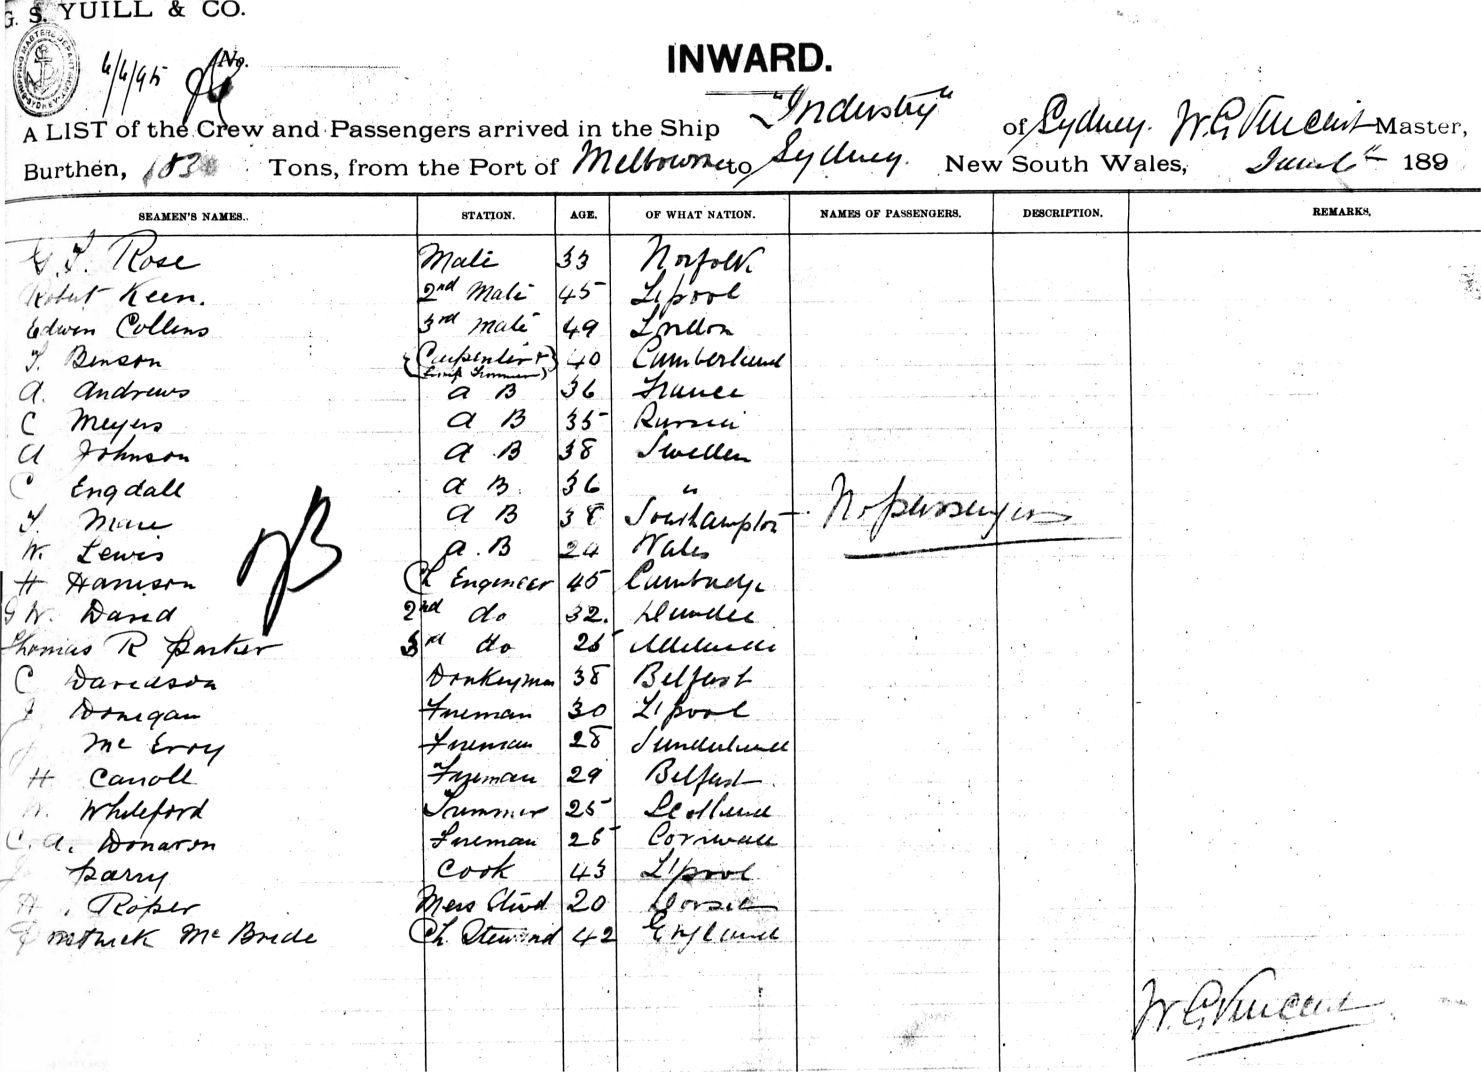 G. S. YUILL & CO.
4/4/95 No.
INWARD.
A LIST of the Crew and Passengers arrived in the Ship "Industry" of Sydney. W. G. Vincent Master,
Burthen, 183 Tons, from the Port of Melbourne to Sydney. New South Wales, June 6th 189
SEAMEN'S NAMES. STATION. AGE. OF WHAT NATION. NAMES OF PASSENGERS. DESCRIPTION. REMARKS.
G. T. Rose Mate 33 Norfolk
Robert Keen. 2nd Mate 45 L'pool
Edwin Collins 3rd Mate 49 London
T. Benson {Carpenter & Lamp Trimmer} 40 Cumberland
A. Andrews A B 36 France
C Meyers A B 35 Russia
A Johnson A B 38 Sweden
C Engdall A B 36 "
T. Mare A B 38 Southampton No passengers
W. Lewis A. B 24 Wales
H Harrison Ch Engineer 45 Cambridge
G W. David 2nd do 32. Dundee
Thomas R Parker 3rd do 25 Adelaide
C Davidson Donkeyman 38 Belfast
J Donegan Fireman 30 L'pool
J Mc Evoy Fireman 28 Sunderland
H Carroll Fireman 29 Belfast
W. Whiteford Trimmer 25 Scotland
C. A. Donavon Fireman 25 Cornwall
J Parry Cook 43 L'pool
H. Roper Mess Stwd 20 Dorset
Mc Bride Ch. Steward 42 England
W. G. Vincent